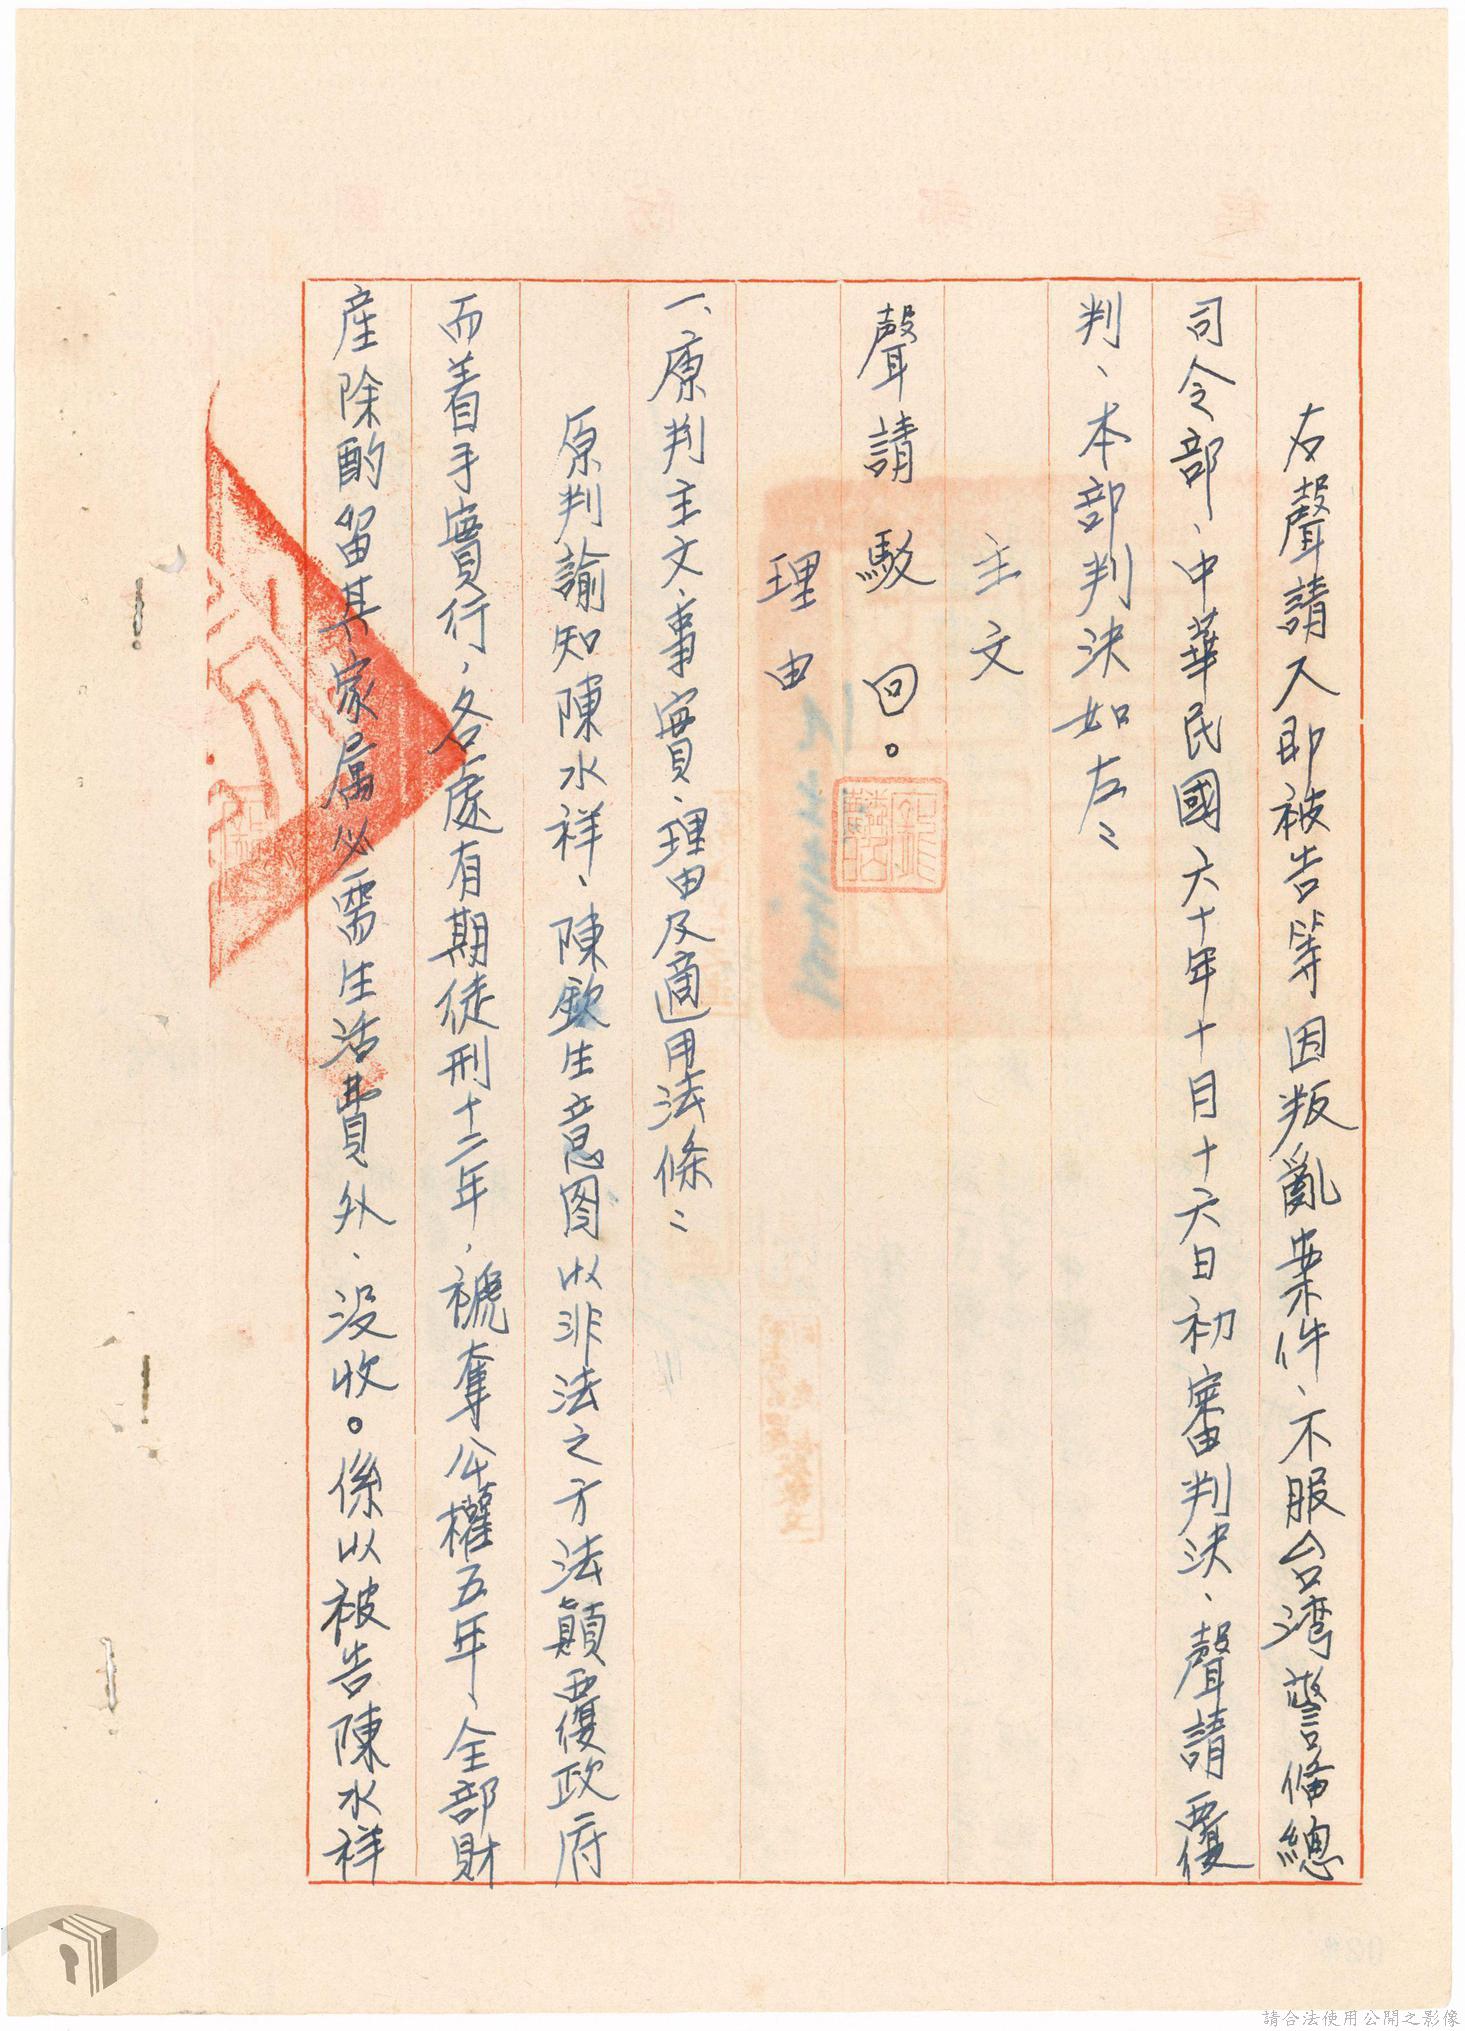 右聲請人即被告等因叛亂案件、不服台湾警備總
司令部、中華民國六十年十月十六日初審判決、聲請覆
判、本部判決如左：
主文
聲請駁回。
理由
一、原判主文、事實、理由及適用法條：
原判諭知陳水祥、陳欽生意图以非法之方法顛覆政府
而着手實行，各處有期徒刑十二年，褫奪公權五年、全部財
産除酌留其家属必需生活費外、没收。係以被告陳水祥
請合法使用公開之影像